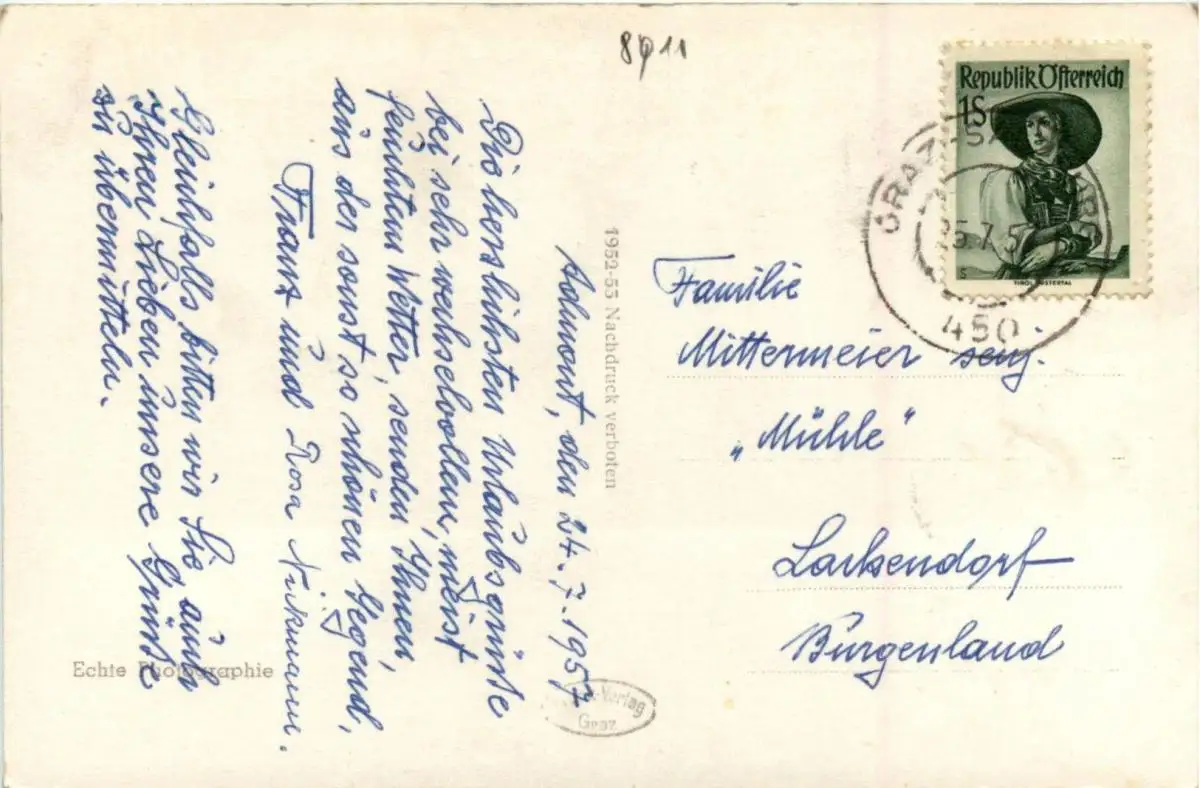 8911
Republik Österreich
1S
TIROL, PUSTERTAL
GRAZ
25.7.5
450
Admont, den 24.7.1957
Die herzlichsten Urlaubsgrüße
bei sehr wechselvollem, meist
feuchtem Wetter, senden Ihnen,
aus der sonst so schönen Gegend,
Franz und Rosa
Gleichfalls bitten wir Sie auch
Ihren Lieben unsere Grüße
zu übermitteln.
1952-55 Nachdruck verboten
Familie
Mittermeier senj.
„Mühle“
Lackendorf
Burgenland
Echte Photographie
Verlag
Graz